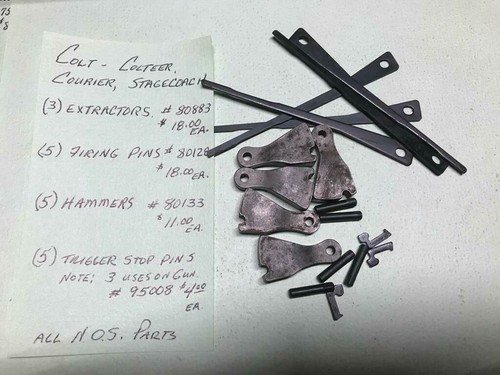 75
$8
COLT - COLTEER,
COURIER, STAGECOACH
(3) EXTRACTORS. # 80883
$18.00 EA.
(5) FIRING PINS # 80128
$18.00 EA.
(5) HAMMERS # 80133
$11.00 EA.
(5) TRIGGER STOP PINS
NOTE; 3 USES ON GUN.
# 95008 $4.00
EA.
ALL N.O.S. PARTS